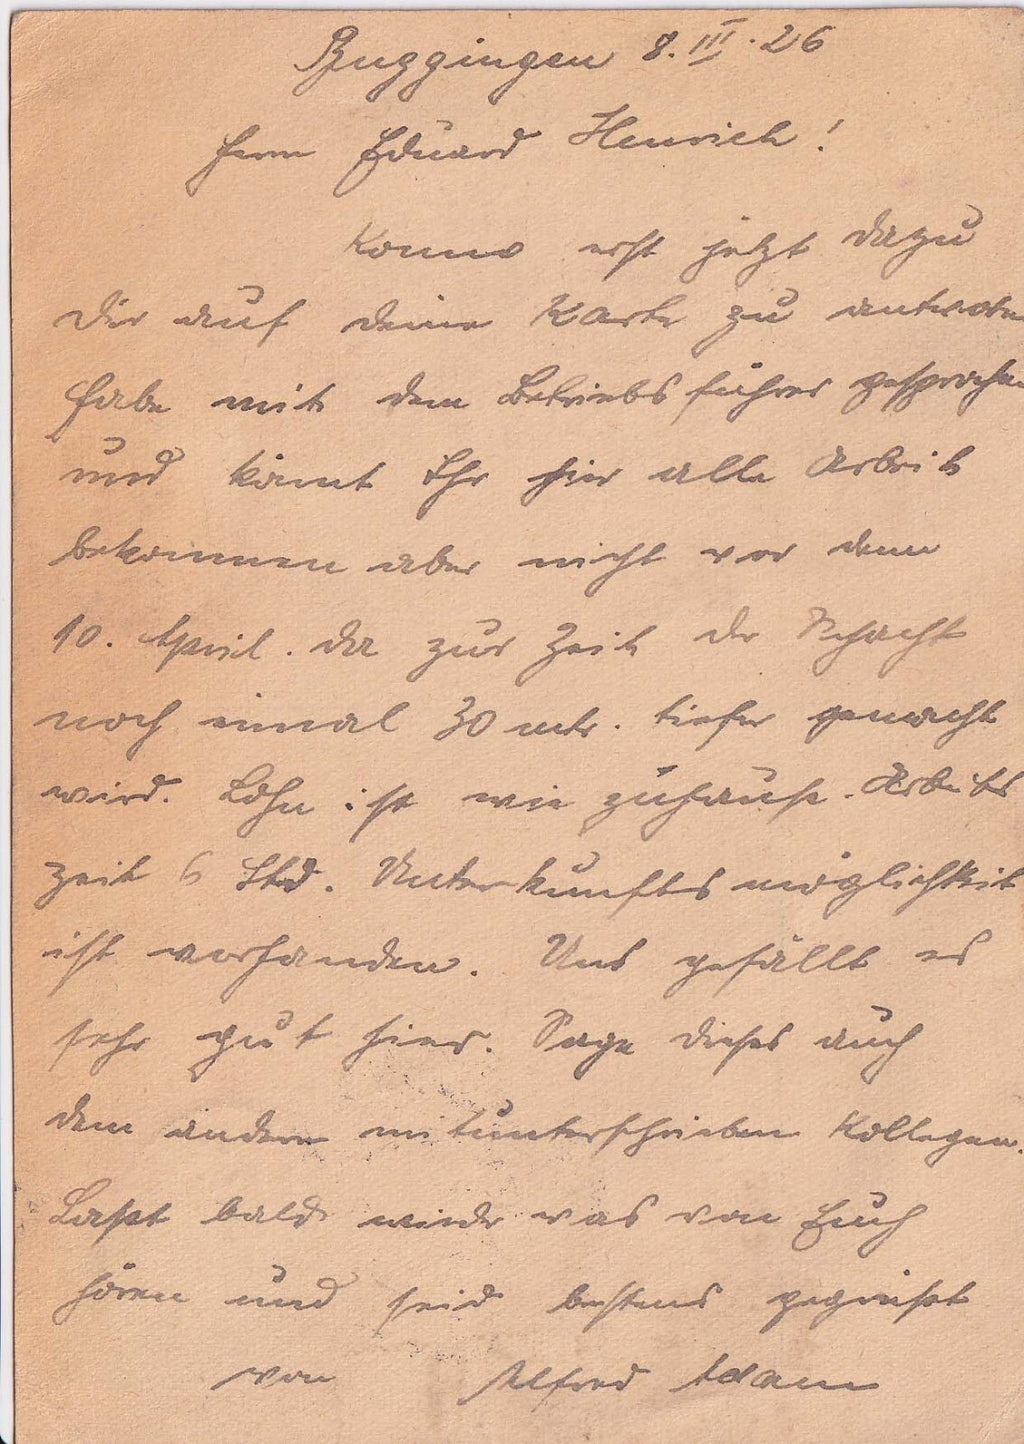 Buggingen 8.III.26
Herrn Eduard Henrich!
Komme erst jetzt dazu
Dir auf deine Karte zu antworten
habe mit dem Betriebsführer gesprochen
und könnt Ihr hier alle Arbeit
bekommen aber nicht vor dem
10. April. da zur Zeit der Schacht
noch einmal 30 mtr. tiefer gemacht
wird. Lohn ist wie zuhause. Arbeits
zeit 6 Std. Unterkunftsmöglichkeit
ist vorhanden. Uns gefällt es
sehr gut hier. Sage dieses auch
den andern mitunterschrieben Kollegen.
Lasst bald wieder was von Euch
hören und seid bestens gegrüsst
von Alfred Adam